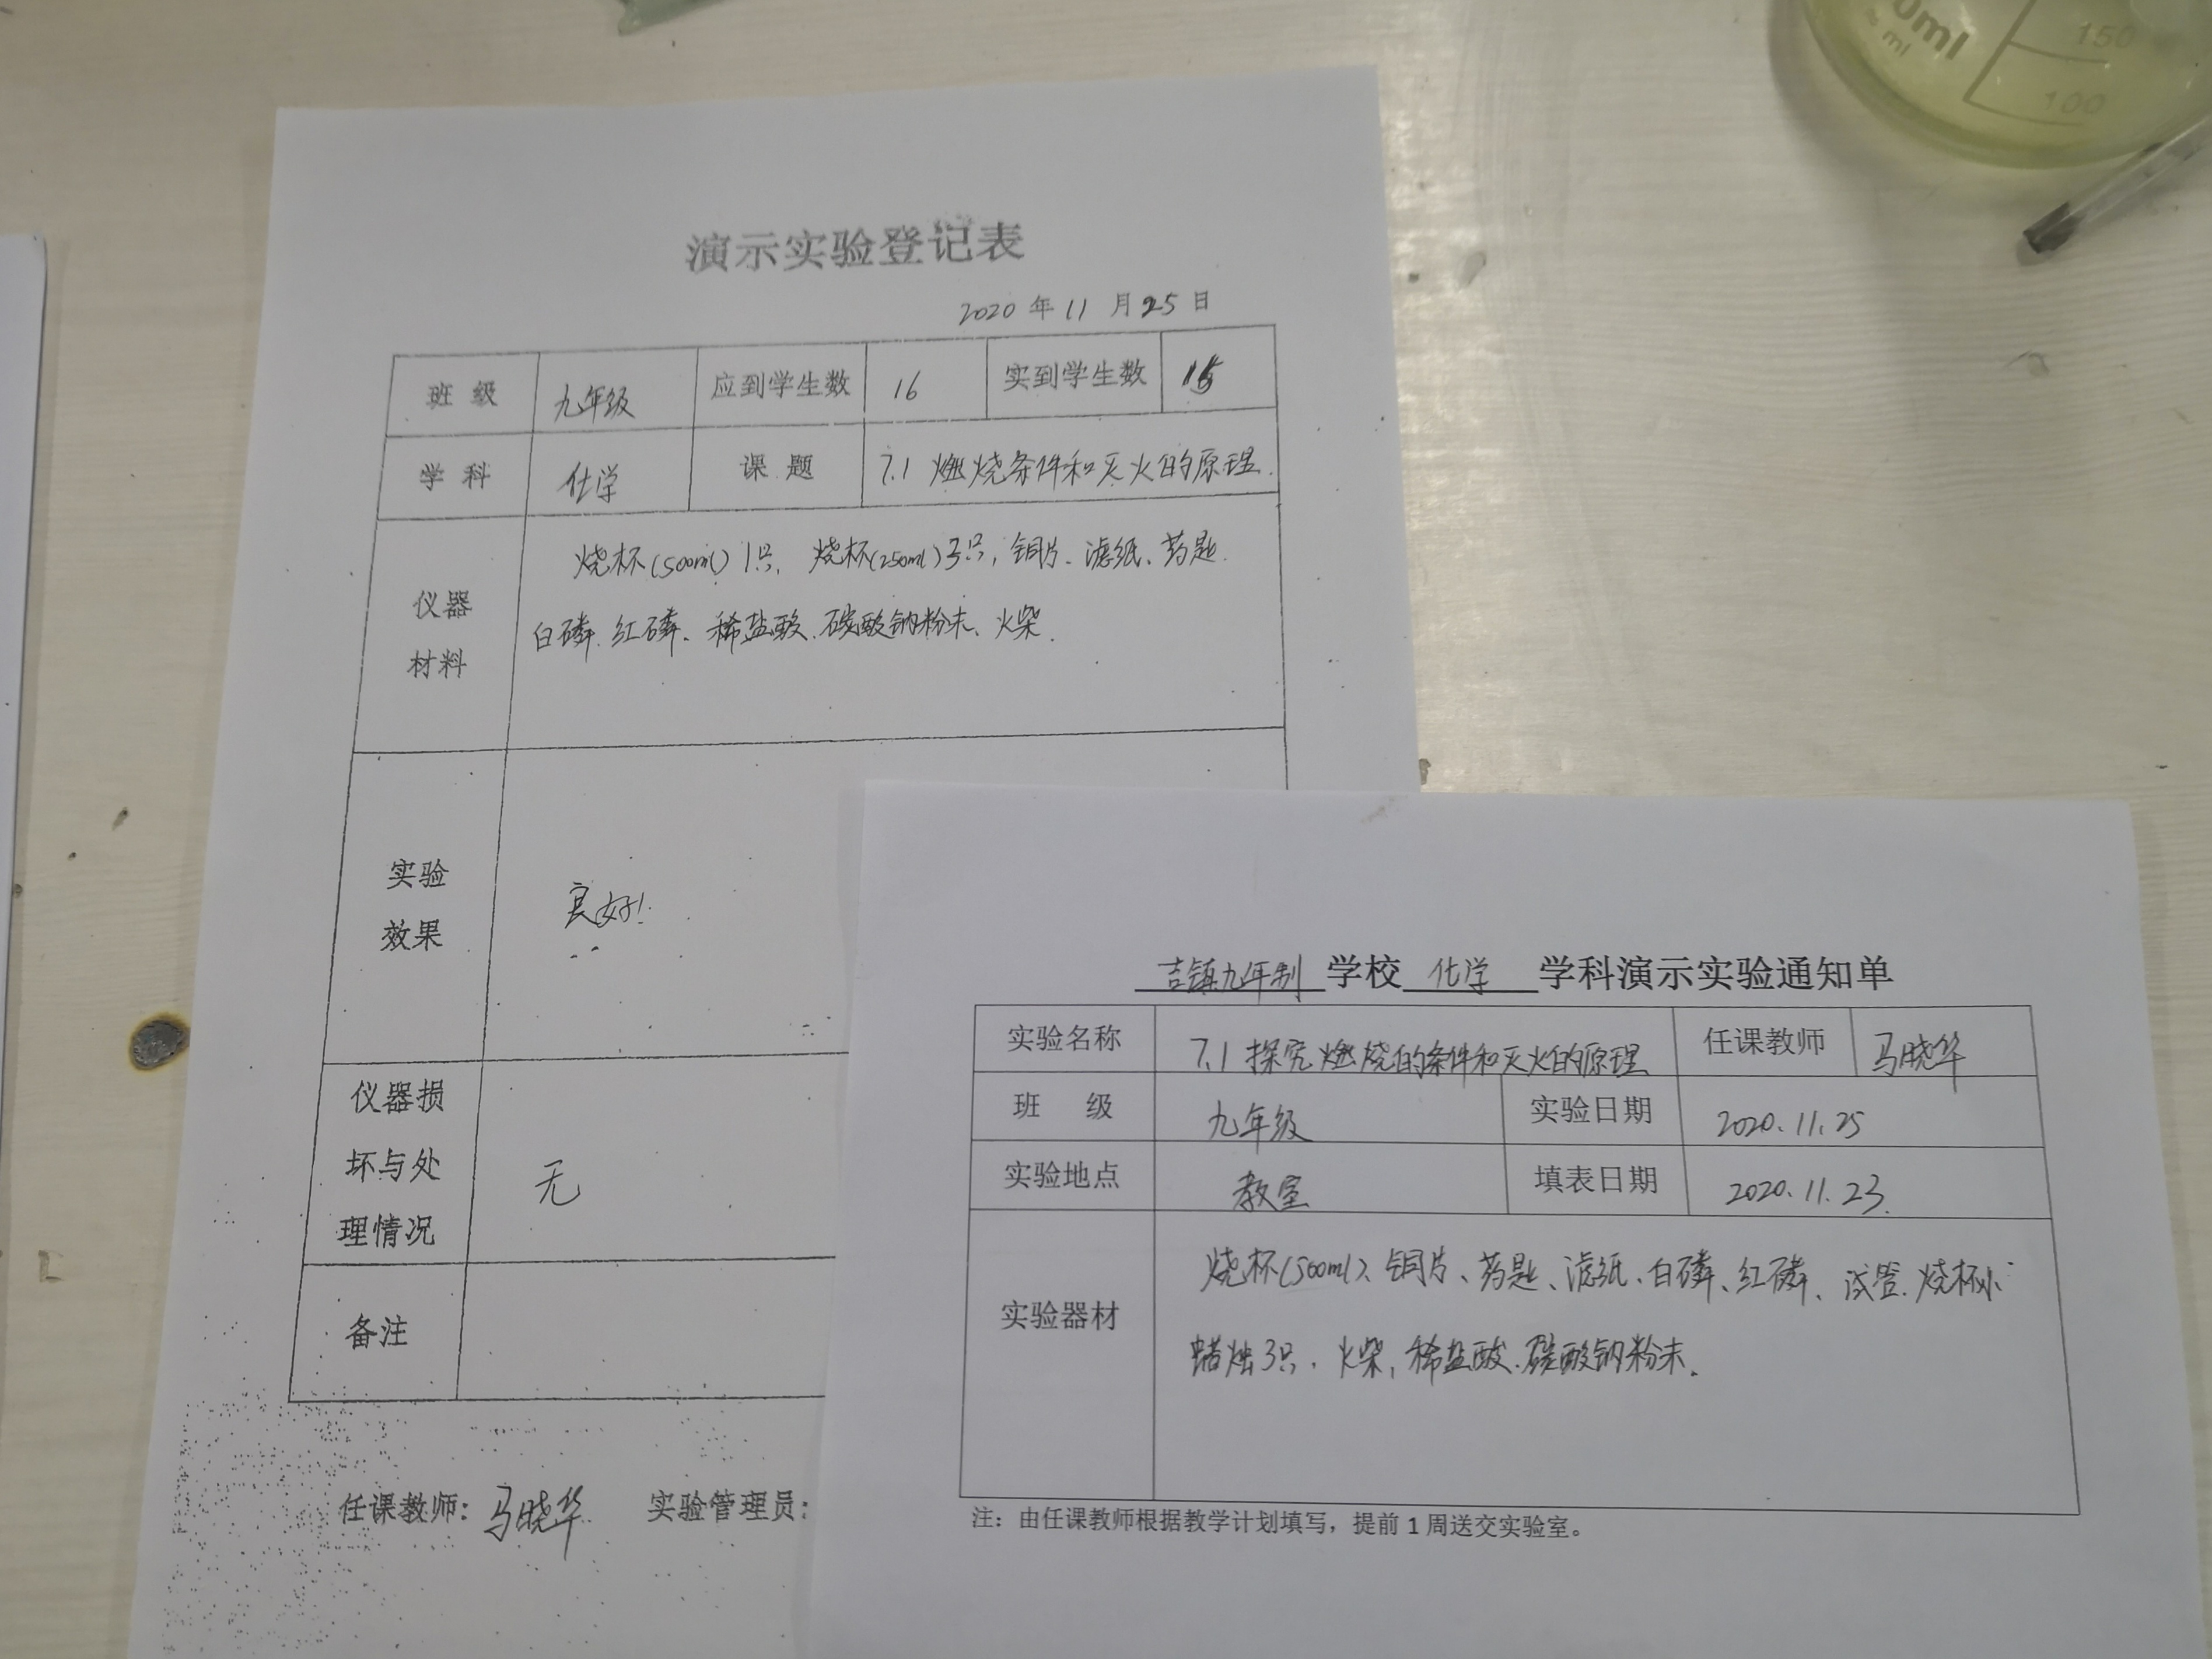 演示实验登记表
2020 年 11 月 25 日
班 级 九年级 应到学生数 16 实到学生数
学 科 化学 课 题 7.1 燃烧条件和灭火的原理.
仪器
材料
烧杯(500ml)1只, 烧杯(250ml)3只, 铜片、滤纸、药匙.
白磷、红磷、稀盐酸、碳酸钠粉末、火柴.
实验
效果
良好!
仪器损
坏与处
理情况
无
备注
任课教师: 马晓华 实验管理员:
吉镇九年制 学校 化学 学科演示实验通知单
实验名称 7.1 探究燃烧的条件和灭火的原理 任课教师 马晓华
班 级 九年级 实验日期 2020.11.25
实验地点 教室 填表日期 2020.11.23.
实验器材
烧杯(500ml)、铜片、药匙、滤纸、白磷、红磷、试管、烧杯小
蜡烛3只、火柴, 稀盐酸、碳酸钠粉末.
注：由任课教师根据教学计划填写，提前 1 周送交实验室。
0ml
ml
150
100